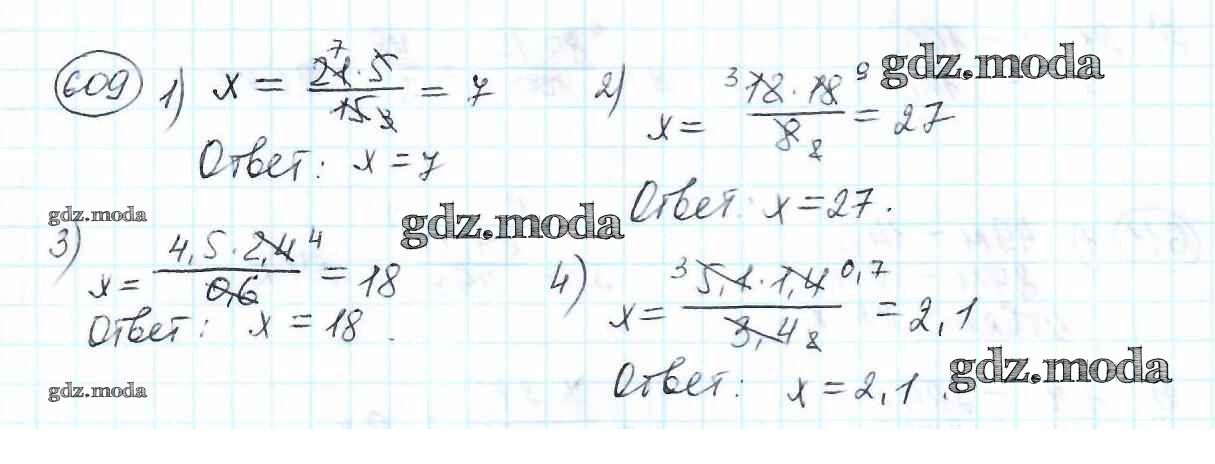 609 1) x = \frac{\overset{7}{21} · 5}{15 3} = 7
Ответ: x = 7
2) x = \frac{^3 12 · 18 ^9}{8 _2} = 27
gdz.moda
Ответ: x = 27.
gdz.moda
gdz.moda
3) x = \frac{4,5 · 2,4 ^4}{0,6} = 18
Ответ: x = 18.
4) x = \frac{^3 5,1 · 1,4 ^{0,7}}{3,4 _2} = 2,1
Ответ: x = 2,1.
gdz.moda
gdz.moda